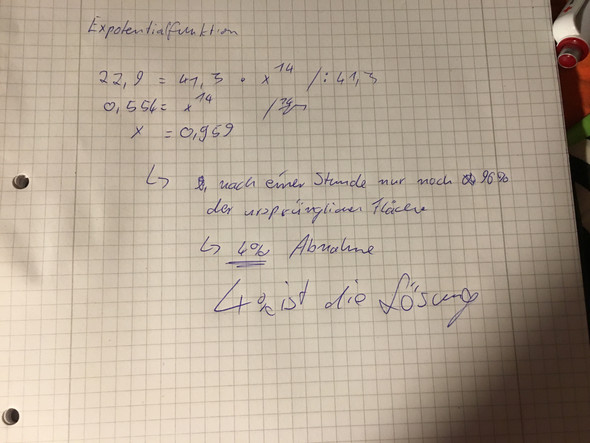 Expotentialfunktion
22,9 = 41,3 · x^14 /:41,3
0,554 = x^14 /
x = 0,959
↳ nach einer Stunde nur noch 96%
der ursprünglichen Fläche
↳ 4% Abnahme
4% ist die Lösung